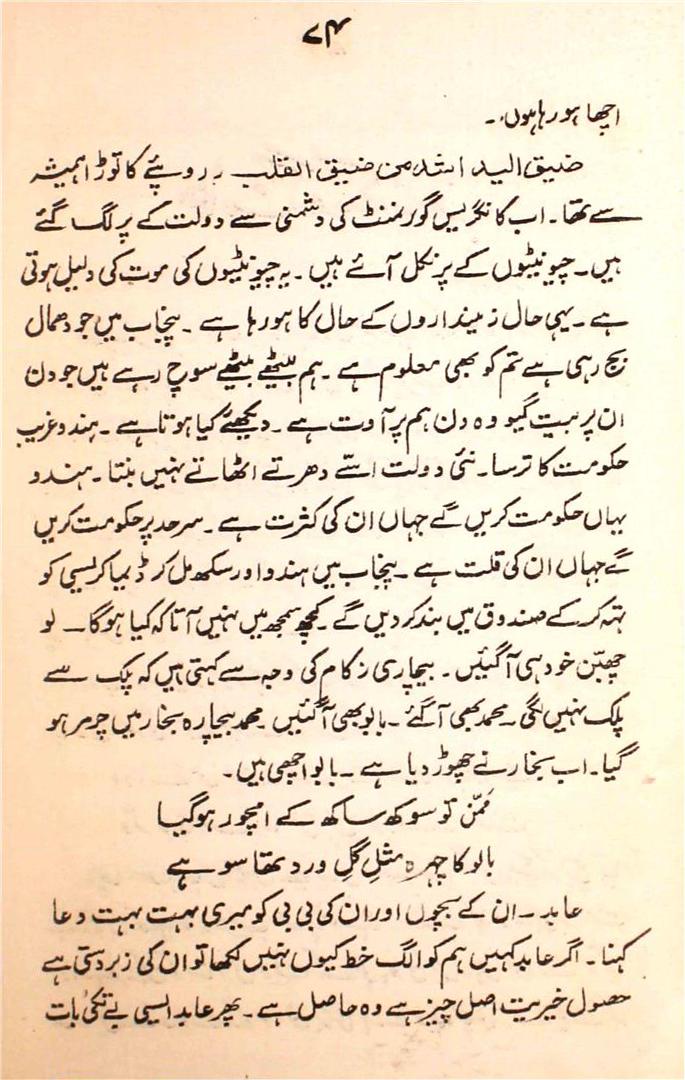 ۷۴
اچھا ہو رہا ہوں۔
ضیق الید اشد من ضیق القلب روپئے کا توڑا ہمیشہ
سے تھا۔ اب کانگریس گورنمنٹ کی دشمنی سے دولت کے پر لگ گئے
ہیں۔ چیونٹیوں کے پر نکل آئے ہیں۔ یہ چیونٹیوں کی موت کی دلیل ہوتی
ہے۔ یہی حال زمینداروں کے حال کا ہو رہا ہے۔ پنجاب میں جو دھمال
مچ رہی ہے تم کو بھی معلوم ہے۔ ہم بیٹھے بیٹھے سوچ رہے ہیں جو دن
ان پر بیت گیو وہ دن ہم پر آوت ہے۔ دیکھئے کیا ہوتا ہے۔ ہندو غریب
حکومت کا ترسا۔ نئی دولت اسے دھرتے اٹھاتے نہیں بنتا۔ ہندو
یہاں حکومت کریں گے جہاں ان کی کثرت ہے۔ سرحد پر حکومت کریں
گے جہاں ان کی قلت ہے۔ پنجاب میں ہندو اور سکھ مل کر ڈیماکریسی کو
تہہ کر کے صندوق میں بند کر دیں گے۔ کچھ سمجھ میں نہیں آتا کہ کیا ہوگا۔ لو
چھبّن خود ہی آگئیں۔ بیچاری زکام کی وجہ سے کہتی ہیں کہ پک سے
پلک نہیں لگی۔ محمد بھی آگئے۔ بالو بھی آگئیں۔ محمد بیچارہ بخار میں چرمر ہو
گیا۔ اب بخار نے چھوڑ دیا ہے۔ بالو اچھی ہیں۔
مُمّن تو سوکھ ساکھ کے امچور ہوگیا
بالو کا چہرہ مثلِ گلِ ورد تھا سو ہے
عابد۔ ان کے بچوں اور ان کی بی بی کو میری بہت بہت دعا
کہنا۔ اگر عابد کہیں ہم کو الگ خط کیوں نہیں لکھا تو ان کی زبردستی ہے
حصول خیریت اصل چیز ہے وہ حاصل ہے۔ پھر عابد ایسی بے تکی بات